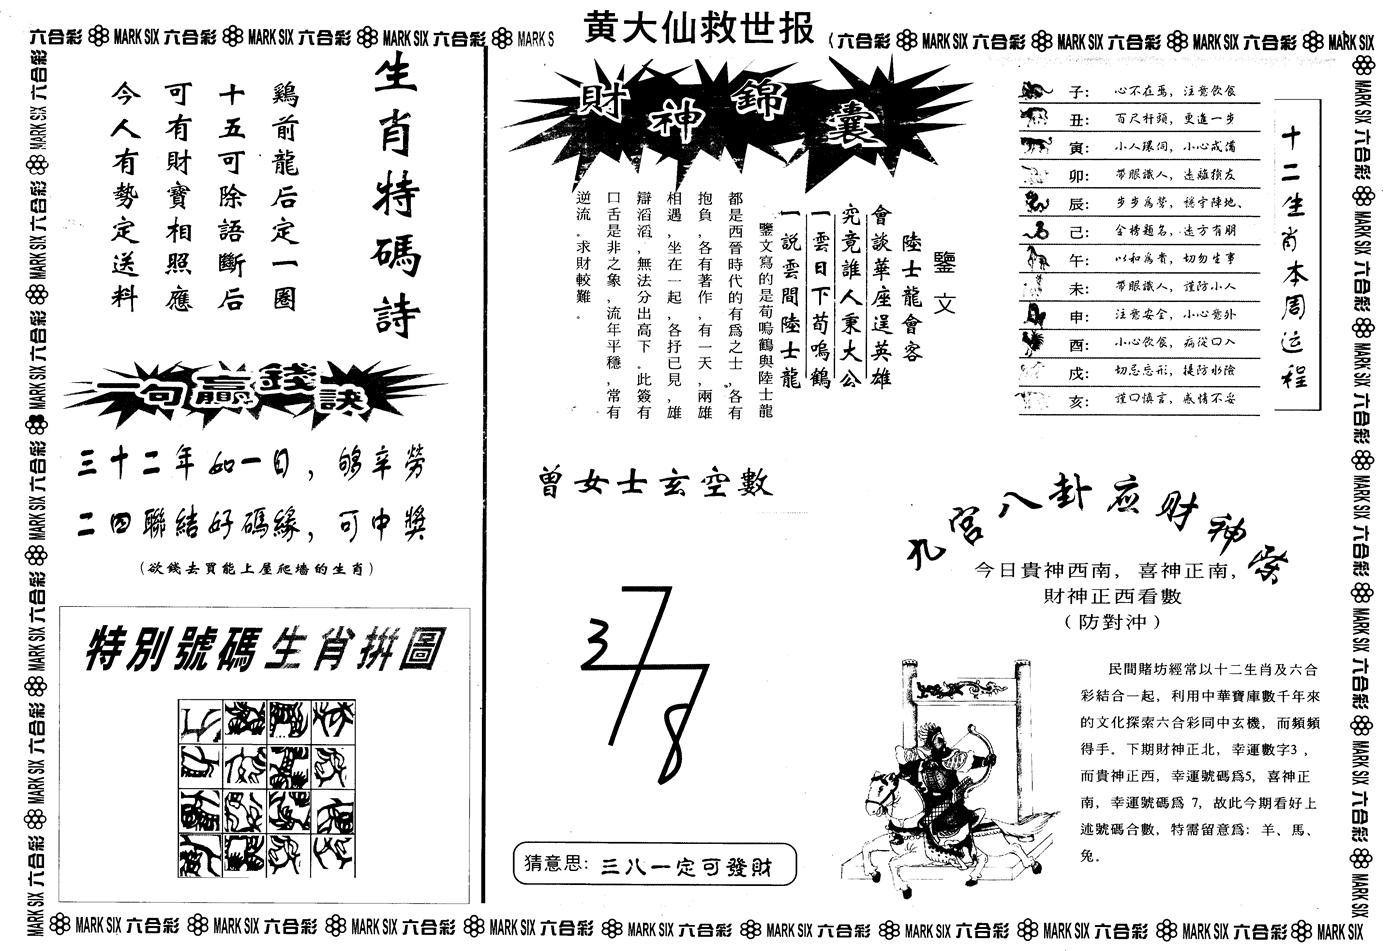 黄大仙救世报
六合彩 MARK SIX 六合彩 MARK SIX 六合彩 MARK SIX 六合彩 MARK S
六合彩 MARK SIX 六合彩 MARK SIX 六合彩 MARK SIX 六合彩 MARK SIX
生肖特碼詩
鷄前龍后定一圈
十五可除語斷后
可有財寶相照應
今人有勢定送料
一句贏錢訣
三十二年如一日，够辛勞
二四聯結好碼緣，可中獎
（欲錢去買能上屋爬墻的生肖）
特別號碼生肖拼圖
財神錦囊
鑒文
陸士龍會客
會談華座逞英雄
究竟誰人秉大公
一雲日下荀鳴鶴
一説雲間陸士龍
鑒文寫的是荀鳴鶴與陸士龍
都是西晉時代的有爲之士,各有
抱負,各有著作,有一天,兩雄
相遇,坐在一起,各抒已見,雄
辯滔滔,無法分出高下。此簽有
口舌是非之象,流年平穩,常有
逆流。求財較難。
曾女士玄空數
3
7
7
8
猜意思: 三八一定可發財
十二生肖本周运程
子: 心不在焉，注意飲食
丑: 百尺杆頭，更進一步
寅: 小人環伺，小心戒備
卯: 帶眼識人，遠離損友
辰: 步步爲營，穩守陣地、
己: 金榜題名，遠方有朋
午: 以和爲貴，切勿生事
未: 帶眼識人，謹防小人
申: 注意安全，小心意外
酉: 小心飲食，病從口入
戍: 切忌忘形，提防水險
亥: 謹口慎言，感情不妥
九宫八卦应财神
今日貴神西南，喜神正南，
財神正西看數
（防對沖）
民間賭坊經常以十二生肖及六合
彩結合一起，利用中華寶庫數千年來
的文化探索六合彩同中玄機，而頻頻
得手。下期財神正北，幸運數字3，
而貴神正西，幸運號碼爲5，喜神正
南，幸運號碼爲 7，故此今期看好上
述號碼合數，特需留意爲: 羊、馬、
兔。
MARK SIX 六合彩 MARK SIX 六合彩 MARK SIX 六合彩 MARK SIX 六合彩 MARK SIX 六合彩 MARK SIX 六合彩 MARK SIX 六合彩 MARK SIX 六合彩 MARK SIX 六合彩 MARK SIX